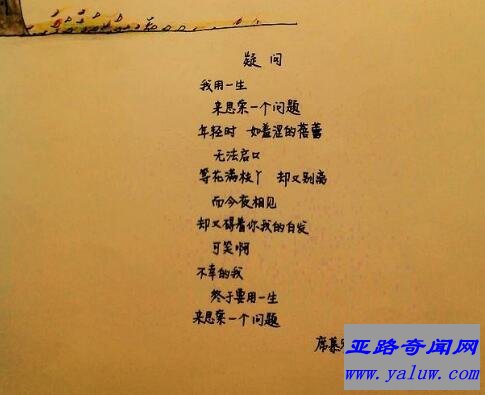 疑问
我用一生
来思索一个问题
年轻时 如羞涩的蓓蕾
无法启口
等花满枝丫 却又别离
而今夜相见
却又碍着你我的白发
可笑啊
不幸的我
终于要用一生
来思索一个问题
席慕
亚路奇闻网
www.yaluw.com